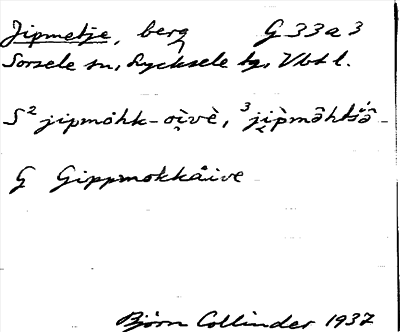 Jipmetje, berg G 33 a 3
Sorsele sn, Lycksele tg, Vbt l.
S² jipmòhk-oi̯vè,
G Gippmokkåive
Björn Collinder 1937